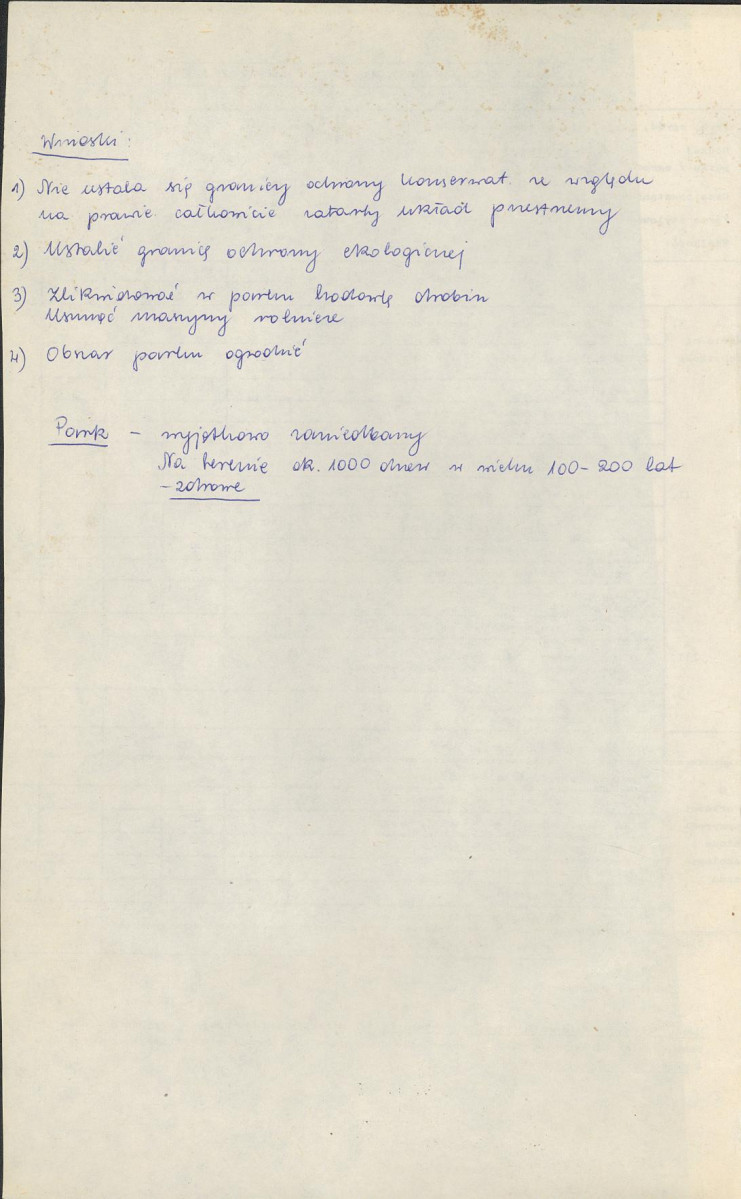 Wnioski:
1) Nie ustala się granicy ochrony konserwat. ze względu
na prawie całkowicie zatarty układ przestrzenny
2) Ustalić granicę ochrony ekologicznej
3) Zlikwidować w parku hodowlę drobiu
Usunąć maszyny rolnicze
4) Obszar parku ogrodzić
Park – wyjątkowo zaniedbany
Na terenie ok. 1000 drzew w wieku 100-200 lat
- zdrowe